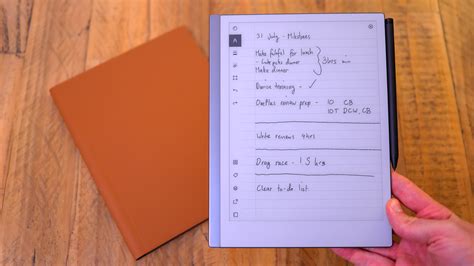 31 July - Milestones
Make falafel for lunch
- Integrate dinner
Make dinner
} 3hrs min
Dance training - ✓
OnePlus review prep - 10 CB
10T DCW, CB
Write reviews 4hrs
Drag race - 1.5 hrs
Clear to-do list